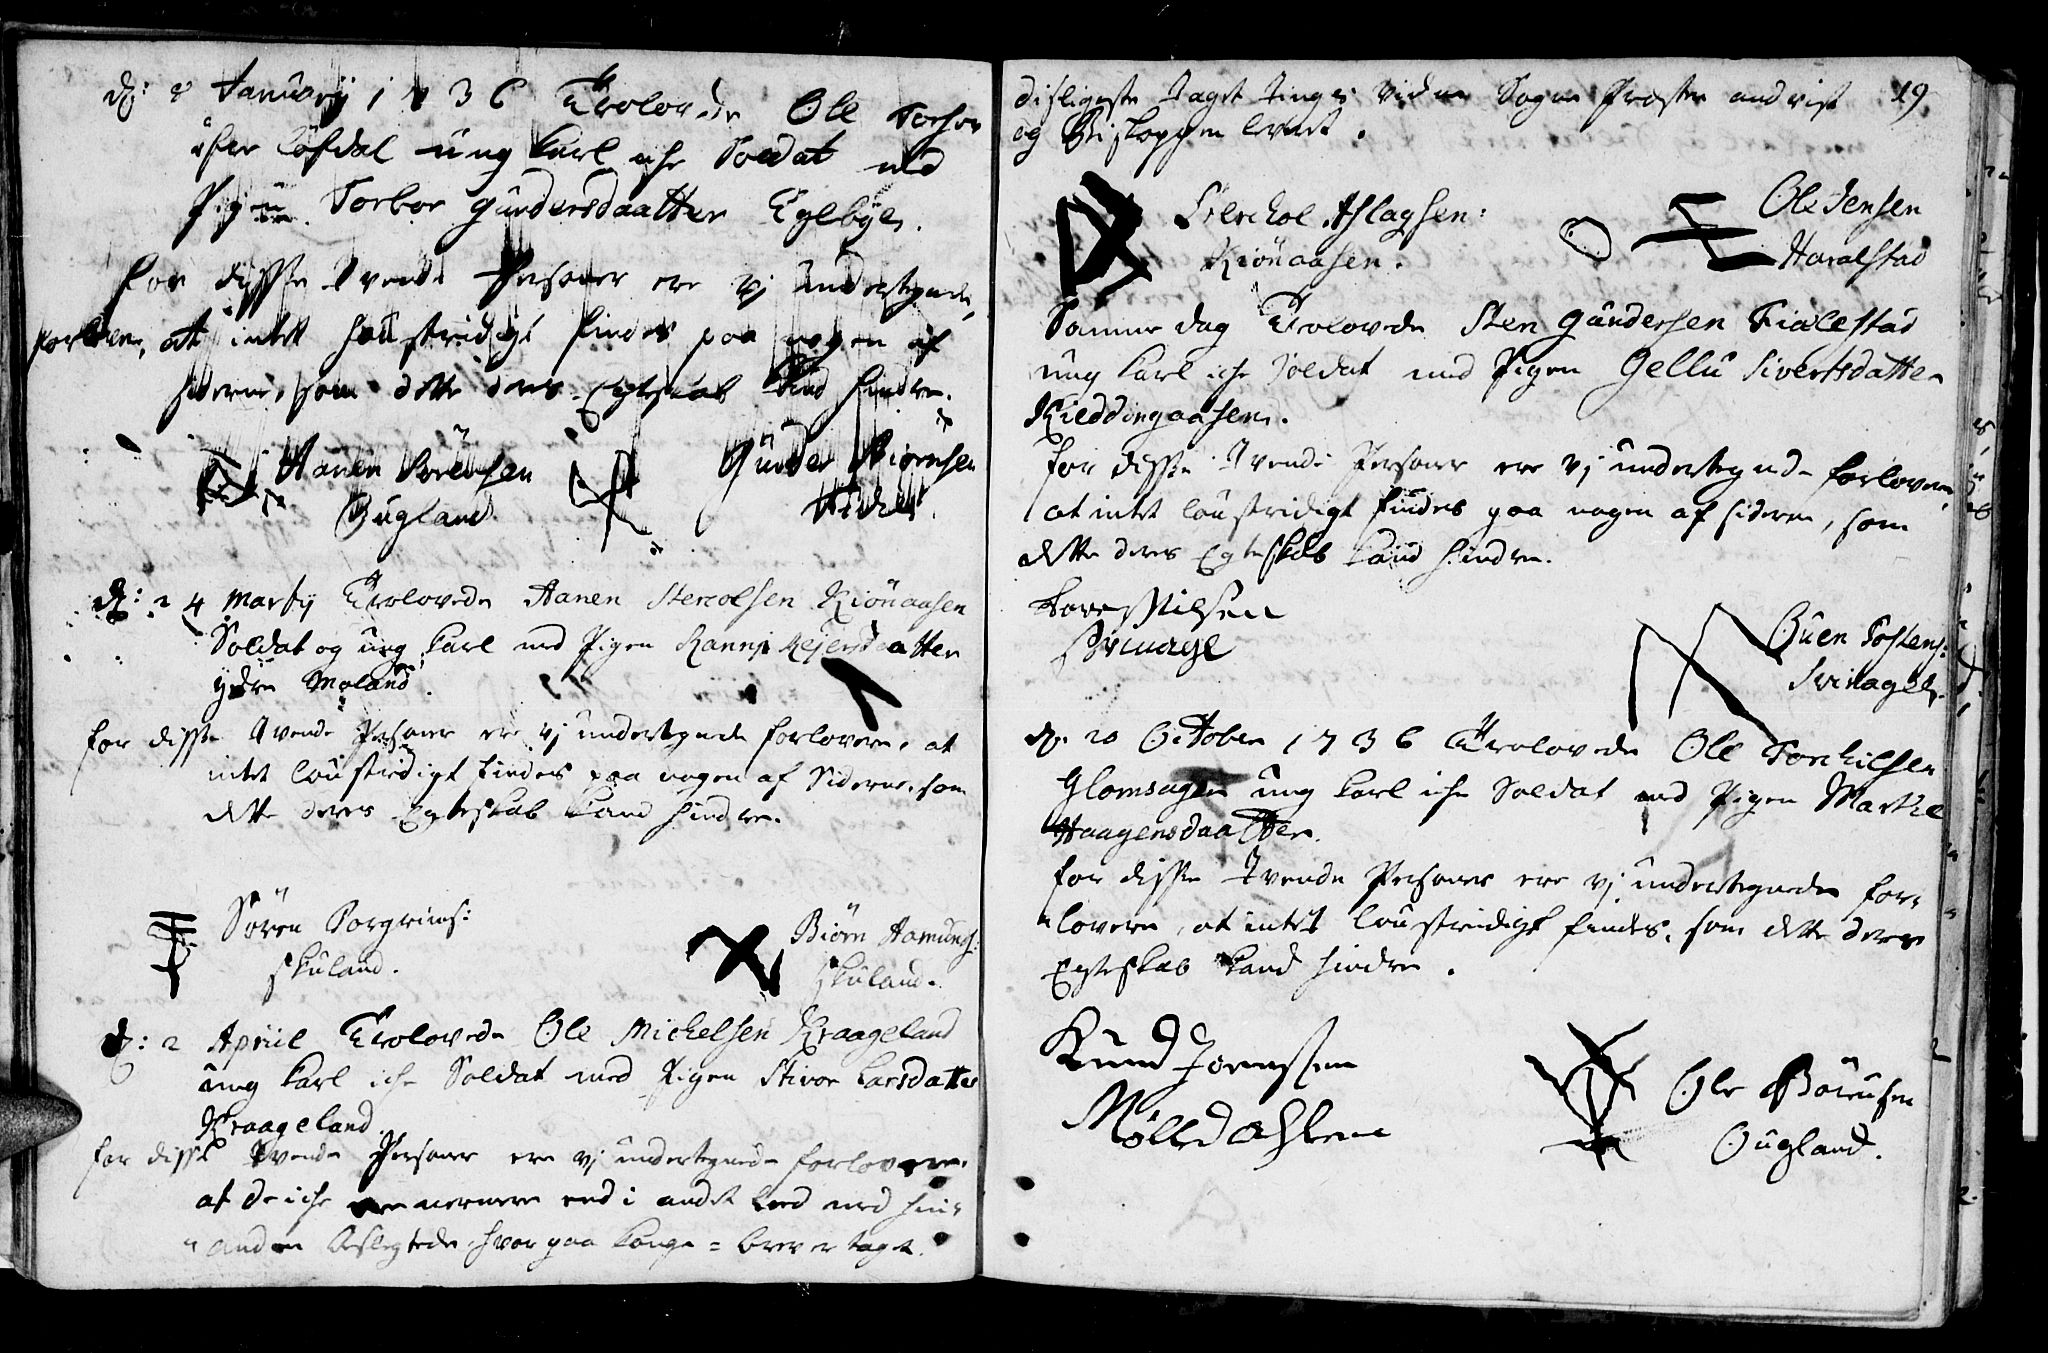 d: 2 January 1736 Trolovede Ole Torsen
Løfdal ung karl iche Soldat med
Pigen Torbor Gundersdaatter Eglebye.
For disse tvende Personer ere vj underteigned
forlovere, at intet saustridigt findes paa nogen af
siderne, som dette deres Egteskab kand hindre.
Aanen Sørensen
Bugland
Gunder Biørnsen
d: 24 Martij Trolovede Aanen Stercolsen Kiønaasen
Soldat og ung karl med Pigen Ranni Rejersdaatter
ydre Moland.
for disse tvende Personer ere vj undertegnede forlovere, at
intet laustridigt findes paa nogen af Siderne, som
dette deres Egteskab kand hindre.
Søren Torgrims:
Skuland.
Biørn Aamunds:
Skuland.
d: 2 Apriil Trolovede Ole Michelsen Kraageland
ung karl iche Soldat med Pigen Stivor Larsdatter
Kraageland.
for disse tvende Personer ere vj undertegnede forlovere,
at de iche ere nermere end i andet Leed med hin-
anden beslegtede, hvorpaa Konge=brev er taget.
disligeste taget tings vidne Sogne Præsten anvist 19
og Biskoppen leveret.
Stercol Aslagsen:
Kiønaasen.
Ole Jensen
Haralstad
Samme dag Trolovede Sten Gundersen Fialestad
ung karl iche soldat med Pigen Gellu Sivertsdatter
Kieddingaasen.
for disse tvende Personer ere vj undertegnede forlovere,
at intet laustridigt findes paa nogen af siderne, som
dette deres Egteskab kand hindre.
Tore Nilsen
Svinage
Guen Tostens:
Svinagel.
d: 20 October 1736 Trolovede Ole Torkilsen
Glomsager ung karl iche Soldat med Pigen Marthe
Haagensdaatter.
for disse tvende Personer ere vj undertegnede for-
lovere, at intet laustridigt findes, som dette deres
Egteskab kand hindre.
Knud Joenssen
Mølldahlen
Ole Børusen
Bugland.